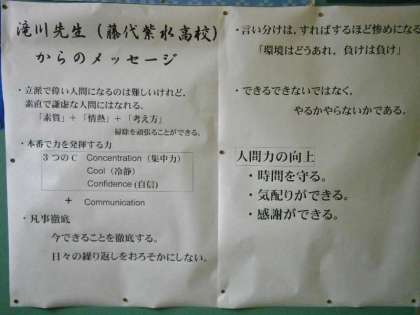 滝川先生(藤代紫水高校)
からのメッセージ
・立派で偉い人間になるのは難しいけれど、
素直で謙虚な人間にはなれる。
「素質」+「情熱」+「考え方」
掃除を頑張ることができる。
・本番で力を発揮する力
3つのC Concentration(集中力)
Cool(冷静)
Confidence(自信)
+ Communication
・凡事徹底
今できることを徹底する。
日々の繰り返しをおろそかにしない。
・言い分けは、すればするほど惨めになる
「環境はどうあれ、負けは負け」
・できるできないではなく、
やるかやらないかである。
人間力の向上
・時間を守る。
・気配りができる。
・感謝ができる。